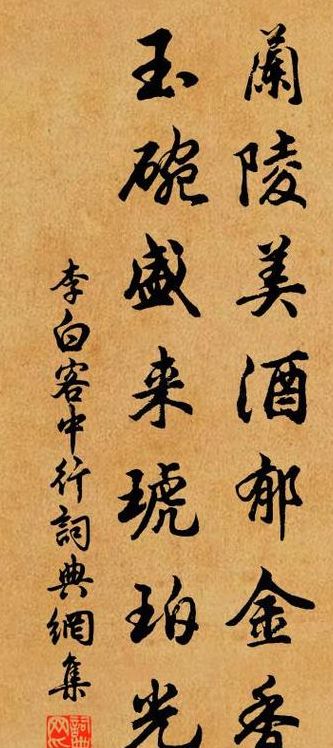 蘭陵美酒郁金香
玉碗盛来琥珀光
李白客中行詞典網集